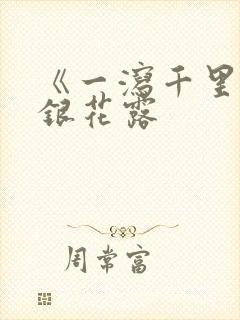 《一瀉千里
銀花露
周常富